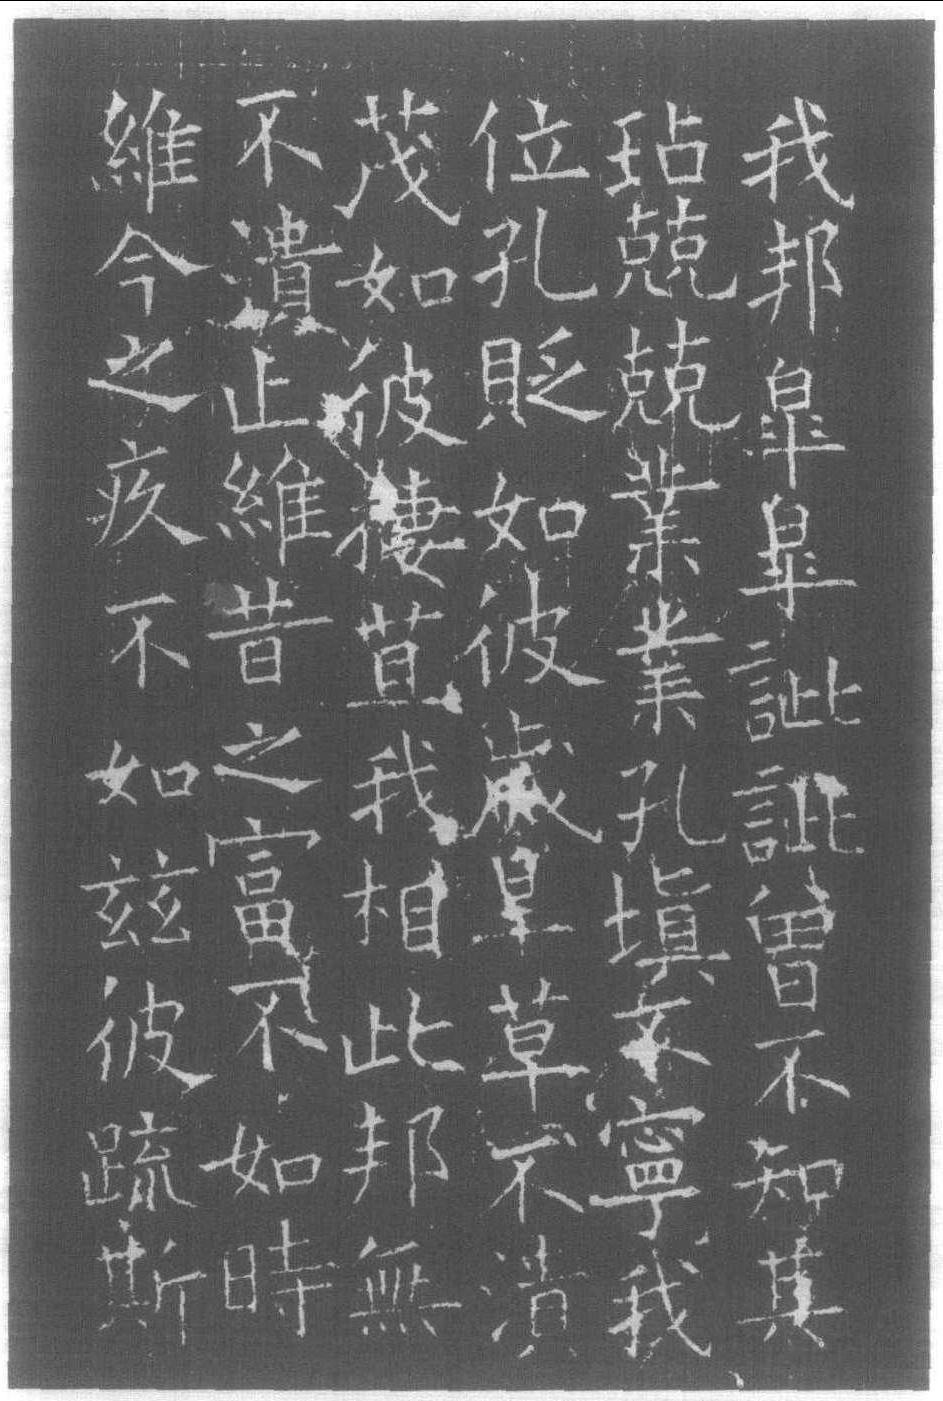 我邦皐皐訿訿曾不知其
玷兢兢業業孔填不寧我
位孔貶如彼歲旱草不潰
茂如彼摟苴我相此邦無
不潰止維昔之富不如時
維今之疚不如茲彼疏斯